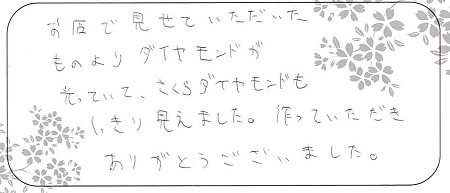 お店で見せていただいた
ものよりダイヤモンドが
光っていて、さくらダイヤモンドも
くっきり見えました。作っていただき
ありがとうございました。